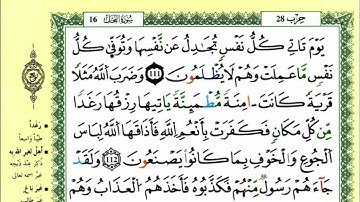 حِزْبُ 28
سُورَةُ النَّحْلِ 16
يَوْمَ تَاتِے كُلُّ نَفْسٖ تُجَٰدِلُ عَن نَّفْسِهَا وَتُوَفّ۪يٰ كُلُّ
نَفْسٖ مَّا عَمِلَتْ وَهُمْ لَا يُظْلَمُونَ 111 وَضَرَبَ اَ۬للَّهُ مَثَلاٗ
قَرْيَةٗ كَانَتَ اٰمِنَةٗ مُّطْمَئِنَّةٗ يَاتِيهَا رِزْقُهَا رَغَداٗ
مِّن كُلِّ مَكَانٖ فَكَفَرَتْ بِأَنْعُمِ اِ۬للَّهِ فَأَذَٰقَهَا اَ۬للَّهُ لِبَاسَ
اَ۬لْجُوعِ وَالْخَوْفِ بِمَا كَانُواْ يَصْنَعُونَ 112 وَلَقَدْ
جَآءَهُمْ رَسُولٞ مِّنْهُمْ فَكَذَّبُوهُ فَأَخَذَهُمُ اُ۬لْعَذَابُ وَهُمْ
رغداً
أهل لغير الله به